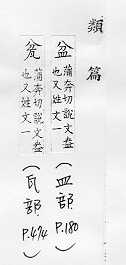 類篇
盆
蒲奔切說文盎
也又姓文一
(皿部 P.180)
瓫
蒲奔切說文盎
也又姓文一
(瓦部 P.474)